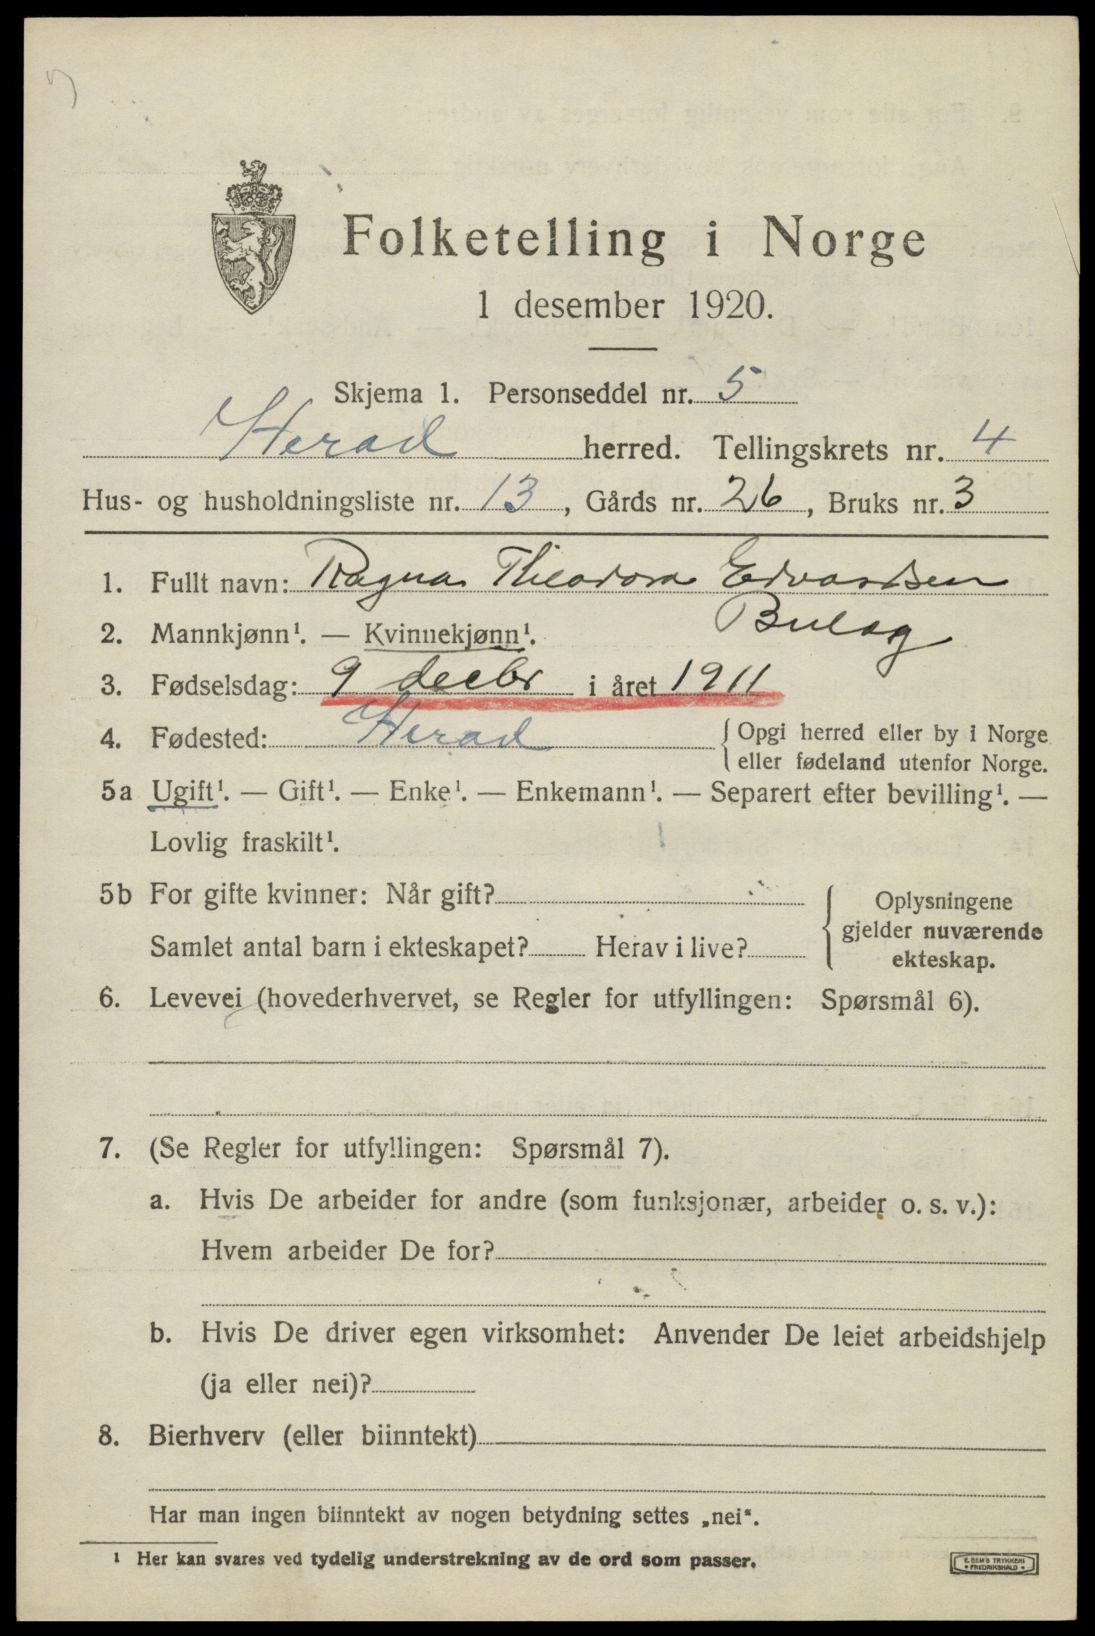 Folketelling i Norge
1 desember 1920.
Skjema 1. Personseddel nr. 5
Herad herred. Tellingskrets nr. 4
Hus- og husholdningsliste nr. 13, Gårds nr. 26, Bruks nr. 3
1. Fullt navn: Ragna Theodora Edvardsen
Bulag
2. Mannkjønn¹. — Kvinnekjønn¹.
3. Fødselsdag: 9 decbr i året 1911
4. Fødested: Herad { Opgi herred eller by i Norge
eller fødeland utenfor Norge.
5a Ugift¹. — Gift¹. — Enke¹. — Enkemann¹. — Separert efter bevilling¹. —
Lovlig fraskilt¹.
5b For gifte kvinner: Når gift?
Samlet antal barn i ekteskapet? Herav i live?
Oplysningene
gjelder nuværende
ekteskap.
6. Levevei (hovederhvervet, se Regler for utfyllingen: Spørsmål 6).
7. (Se Regler for utfyllingen: Spørsmål 7).
a. Hvis De arbeider for andre (som funksjonær, arbeider o. s. v.):
Hvem arbeider De for?
b. Hvis De driver egen virksomhet: Anvender De leiet arbeidshjelp
(ja eller nei)?
8. Bierhverv (eller biinntekt)
Har man ingen biinntekt av nogen betydning settes „nei“.
¹ Her kan svares ved tydelig understrekning av de ord som passer.
E. SEM'S TRYKKERI
• FREDRIKSHALD •